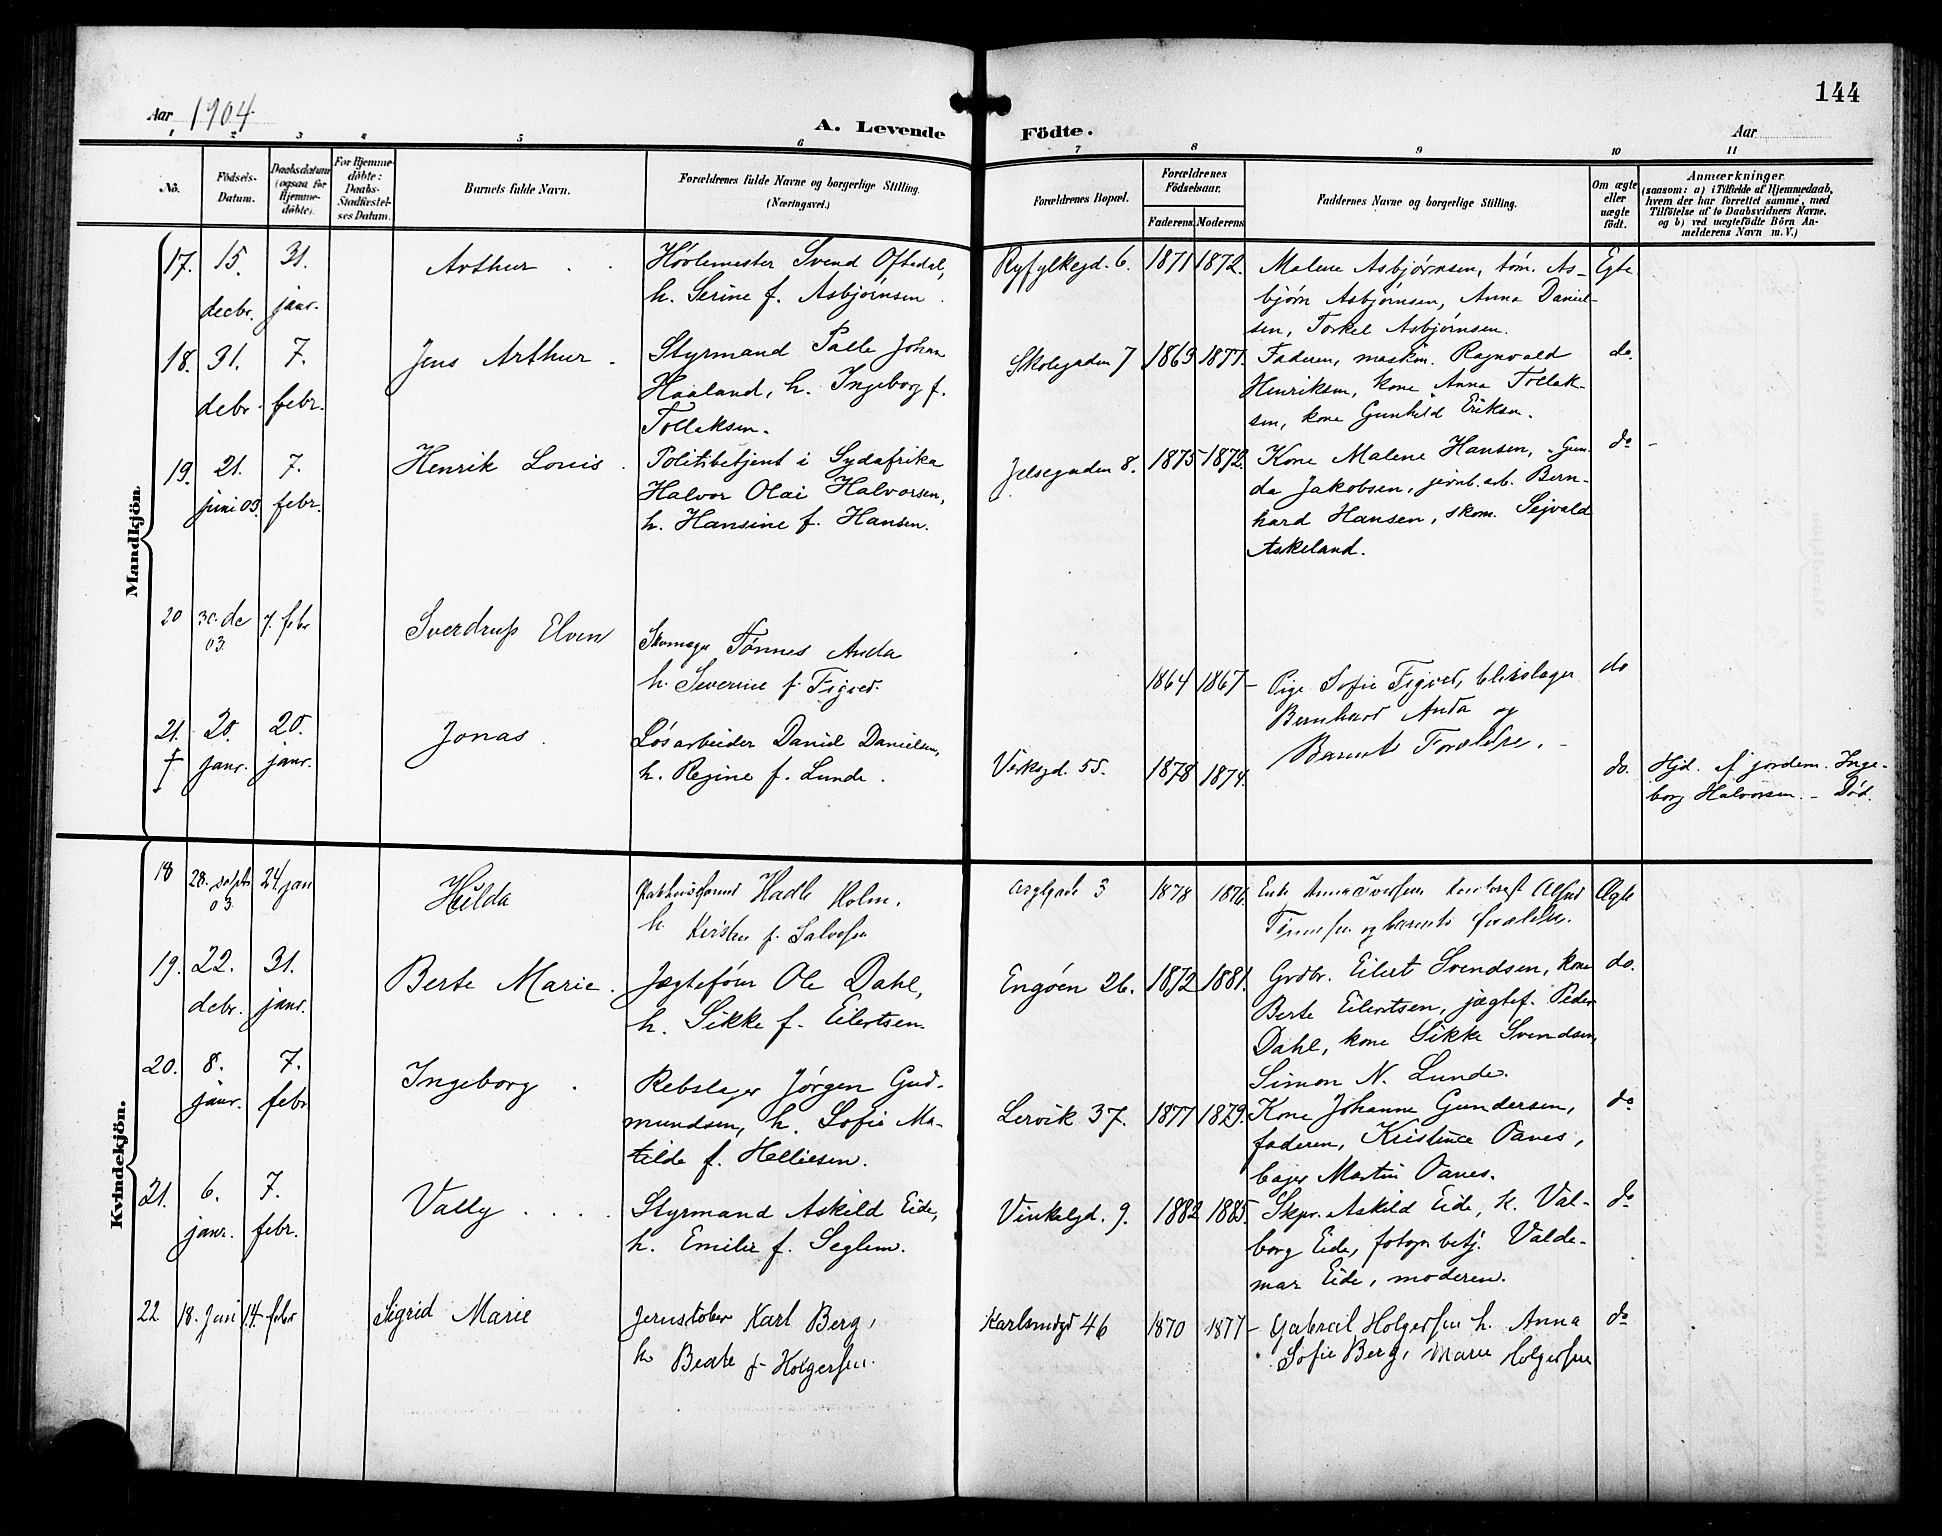 144
Aar 1904
A. Levende Födte.
Aar
1 2 3 4 5 6 7 8 9 10 11
No.
Födsels-
Datum.
Daabsdatum
(ogsaa for
Hjemme-
döbte).
For Hjemme-
döbte:
Daabs-
Stadfæstel-
ses Datum.
Barnets fulde Navn.
Forældrenes fulde Navne og borgerlige Stilling.
(Næringsvei.)
Forældrenes Bopæl.
Forældrenes
Födselsaar.
Faderens Moderens
Faddernes Navne og borgerlige Stilling.
Om ægte
eller
uægte
født.
Anmærkninger
(saasom: a) i Tilfælde af Hjemmedaab,
hvem der har forrettet samme, med
Tilföielse af to Daabsvidners Navne.
og b) ved uægtefödte Börn An-
melderens Navn m. V.)
Mandkjön.
17. 15. decbr. 31. janr. Arthur
Høvlemester Svend Oftedal,
h. Serine f. Asbjørnsen.
Ryfylkegd. 6. 1871 1872.
Malene Asbjørnsen, tøm. As-
bjørn Asbjørnsen, Anna Daniel-
sen, Torkel Asbjørnsen.
Egte.
18. 31. debr. 7. febr. Jens Arthur.
Styrmand Palle Johan
Haaland, h. Ingeborg f.
Tollaksen.
Skolegaden 7 1863 1877.
Faderen, maskin. Ragnvald
Henriksen, kone Anna Tollak-
sen, kone Gunhild Eriksen.
do.
19. 21. juni 03. 7. febr. Henrik Louis.
Politibetjent i Sydafrika
Halvor Olai Halvorsen,
h. Hansine f. Hansen.
Jelsegaden 8. 1875 1872.
Kone Malene Hansen, Gun-
da Jakobsen, jernb. arb. Bern-
hard Hansen, skom. Sigvald
Askeland.
do
20 30. de 03. 7. febr Sverdrup Elven
Skomager Tønnes Anda
h. Severine f. Figved.
1864 1867
Pige Sofie Figved, blikslager
Bernhard Anda og
Barnets Forældre.
do
21. † 20. janr. 20. janr. Jonas.
Løsarbeider Daniel Danielsen,
h. Regine f. Lunde.
Verksgd. 55. 1878 1874.
do.
Hjd. af jordem. Inge-
borg Halvorsen. - Død.
Kvindekjön.
18 28. septr 03. 24. jan Hilda
Hadle Holm.
h Kirsten f. Salvesen
3 1878 1876.
Enke Anna Iversen
og barnets forældre.
Ægte
19. 22. debr. 31. janr. Berte Marie.
Jægtefører Ole Dahl,
h. Sikke f. Eilertsen.
Engøen 26. 1872 1881.
Grdbr. Eilert Svendsen, kone
Berte Eilertsen, jægtef. Peder
Dahl, kone Sikke Svendsen,
Simon N. Lunde.
do.
20. 8. janr. 7. febr Ingeborg.
Rebslager Jørgen Gud-
mundsen, h. Sofie Ma-
tilde f. Helliesen.
Lervik 37. 1877 1879.
Kone Johanne Gundersen,
faderen, Kristence Oanes,
bager Martin Oanes.
do
21. 6. janr. 7. febr. Vally
Styrmand Askild Eide,
h. Emilie f. Seglem.
Vinkelgd. 9. 1882 1885.
Skpr. Askild Eide, k. Val-
borg Eide, fotogr. betj. Valde-
mar Eide, moderen.
do
22 18. Juni 14. febr Sigrid Marie
Jernstøber Karl Berg,
h Beate f Holgersen.
Karlsmdgd 46 1870 1877
Gabriel Holgersen h. Anna
Sofie Berg, Marie Holgersen
do